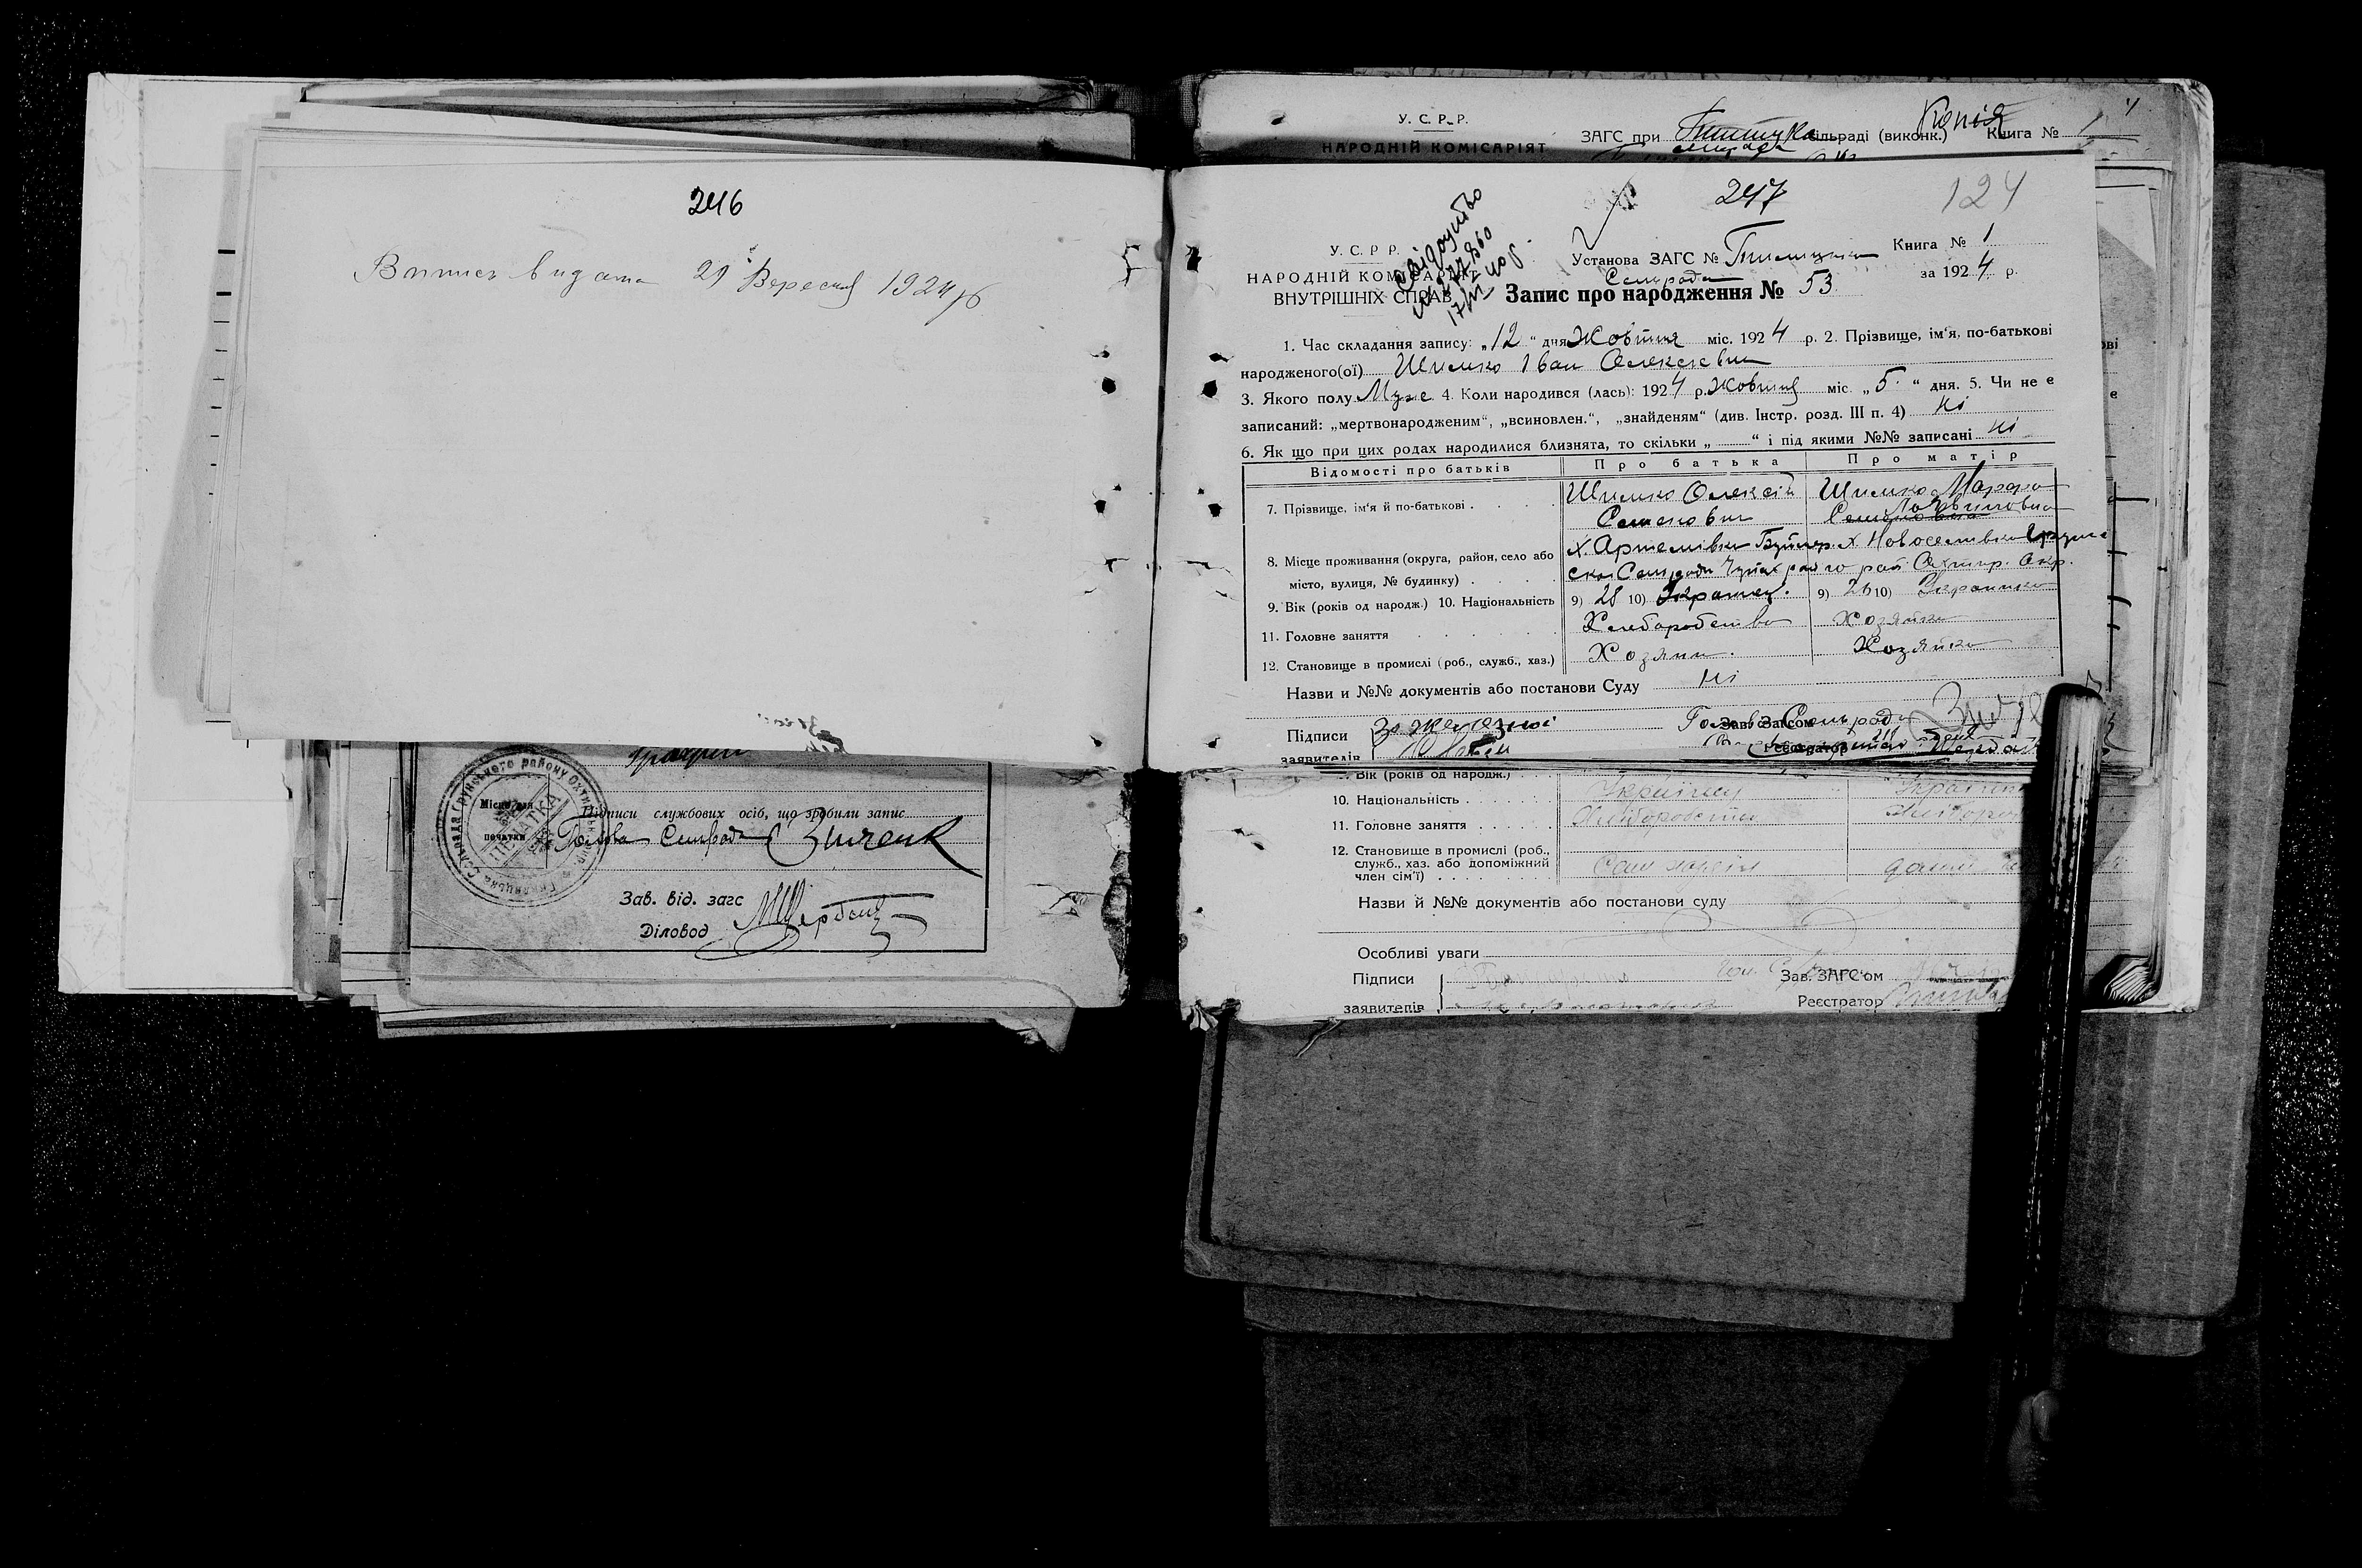 246
Выпись видана 29 Вересня 1924 р
Підписи службових осіб, що зробили запис
Місце для
печатки
ПЕЧАТКА
Голова Сельради Зиченк
Зав. від. загс
Діловод МЩербак
У. С. Р. Р.
НАРОДНІЙ КОМІСАРІЯТ
ЗАГС при сільраді (виконк.) Книга № 1
Копія
247
124
Свідоцтво
У. С. Р. Р.
НАРОДНІЙ КОМІСАРІЯТ
ВНУТРІШНІХ СПРАВ
Установа ЗАГС №
Сельради
Книга № 1
за 1924 р.
Запис про народження № 53
1. Час складання запису: „12“ дня Жовтня міс. 1924 р. 2. Прізвище, ім‘я, по-батькові
народженого(ої) Шимко Іван Олексієвич
3. Якого полу Муже 4. Коли народився (лась): 1924 р. Жовтня міс. „5“ дня. 5. Чи не є
записаний: „мертвонародженим“, „всиновлен.“, „знайденям“ (див. Інстр. розд. III п. 4) ні
6. Як що при цих родах народилися близнята, то скільки „ “ і під якими №№ записані ні
Відомості про батьків Про батька Про матір
7. Прізвище, ім‘я й по-батькові Шимко Олексій Шимко Марфа
Семенович Логвиновна
8. Місце проживання (округа, район, село або х. Артемівка х. Новоселивка
місто, вулиця, № будинку) Сельради Чупах. рай. Охтир. Окр.
9. Вік (років од народж.) 10. Національність 9) 28 10) Украинец. 9) 26 10) Украинка
11. Головне заняття Хлеборобство Хозяйка
12. Становище в промислі (роб., служб., хаз.) Хозяин. Хозяйка
Назви и №№ документів або постанови Суду ні
Підписи
заявителів
Зав. Загсом
Голова Сельради
Реєстратор
Вік (років од народж.)
10. Національність Українец
11. Головне заняття
12. Становище в промислі (роб.,
служб., хаз. або допоміжний
член сім‘ї)
Назви й №№ документів або постанови суду
Особливі уваги
Підписи Зав. ЗАГС‘ом
заявителів Реєстратор